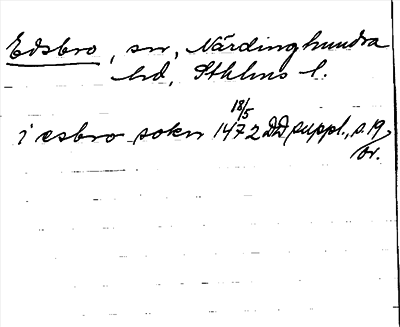 Edsbro, sn, Närdinghundra
hd, Sthlms l.
i esbro sokn 18/5 1472 DD suppl., s. 19,
or.